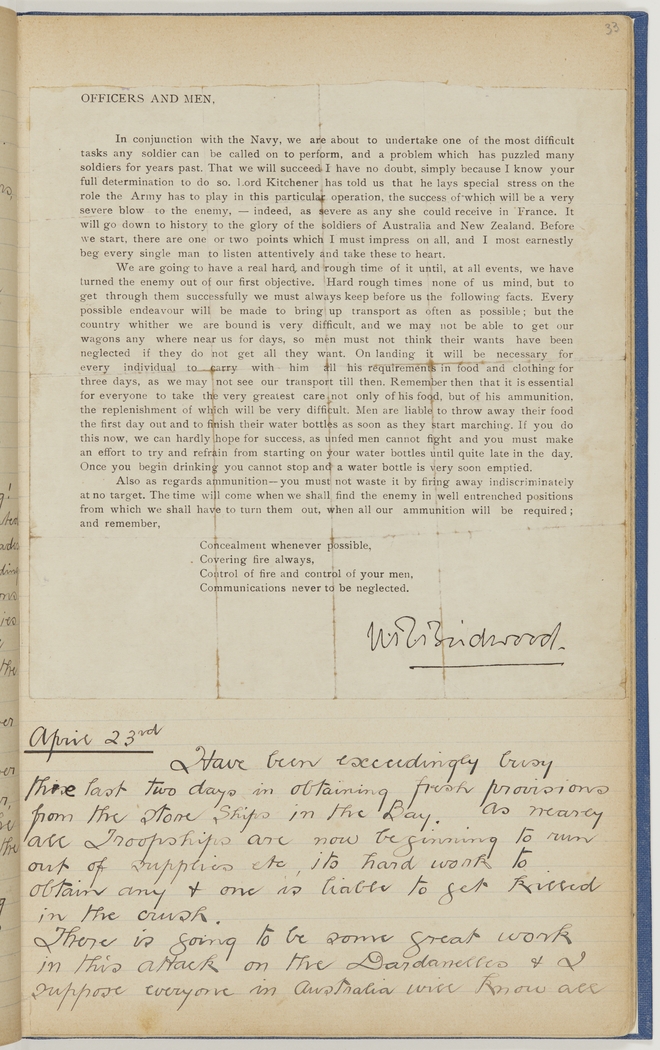 33
OFFICERS AND MEN,
In conjunction with the Navy, we are about to undertake one of the most difficult
tasks any soldier can be called on to perform, and a problem which has puzzled many
soldiers for years past. That we will succeed I have no doubt, simply because I know your
full determination to do so. Lord Kitchener has told us that he lays special stress on the
role the Army has to play in this particular operation, the success of which will be a very
severe blow to the enemy, — indeed, as severe as any she could receive in France. It
will go down to history to the glory of the soldiers of Australia and New Zealand. Before
we start, there are one or two points which I must impress on all, and I most earnestly
beg every single man to listen attentively and take these to heart.
We are going to have a real hard, and rough time of it until, at all events, we have
turned the enemy out of our first objective. Hard rough times none of us mind, but to
get through them successfully we must always keep before us the following facts. Every
possible endeavour will be made to bring up transport as often as possible; but the
country whither we are bound is very difficult, and we may not be able to get our
wagons any where near us for days, so men must not think their wants have been
neglected if they do not get all they want. On landing it will be necessary for
every individual to carry with him all his requirements in food and clothing for
three days, as we may not see our transport till then. Remember then that it is essential
for everyone to take the very greatest care not only of his food, but of his ammunition,
the replenishment of which will be very difficult. Men are liable to throw away their food
the first day out and to finish their water bottles as soon as they start marching. If you do
this now, we can hardly hope for success, as unfed men cannot fight and you must make
an effort to try and refrain from starting on your water bottles until quite late in the day.
Once you begin drinking you cannot stop and a water bottle is very soon emptied.
Also as regards ammunition—you must not waste it by firing away indiscriminately
at no target. The time will come when we shall find the enemy in well entrenched positions
from which we shall have to turn them out, when all our ammunition will be required;
and remember,
Concealment whenever possible,
Covering fire always,
Control of fire and control of your men,
Communications never to be neglected.
W R Birdwood.
April 23rd
Have been exceedingly busy
these last two days in obtaining fresh provisions
from the store ships in the Bay. As nearly
all Troopships are now beginning to run
out of supplies etc, its hard work to
obtain any & one is liable to get killed
in the crush.
There is going to be some great work
in this attack on the Dardanelles & I
suppose everyone in Australia will know all